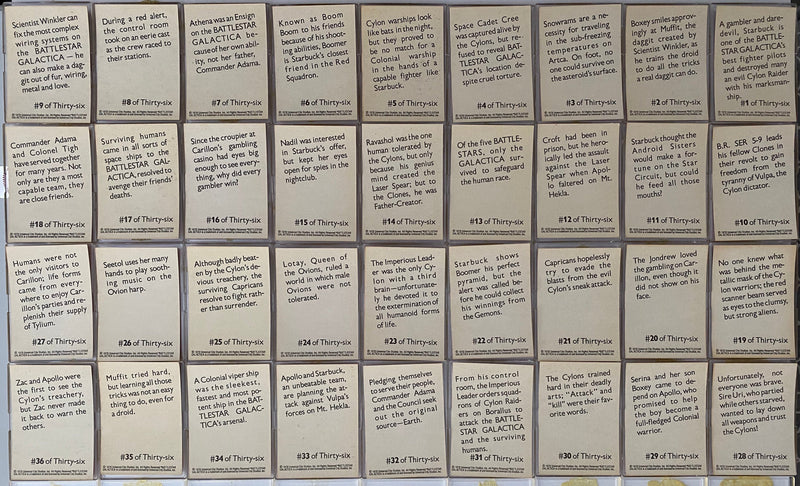 Scientist Winkler can
fix the most complex
wiring systems on
the BATTLESTAR
GALACTICA — he
can also make a dag-
git out of fur, wiring,
metal and love.
#9 of Thirty-six
During a red alert,
the control room
took on an eerie cast
as the crew raced to
their stations.
#8 of Thirty-six
Athena was an Ensign
on the BATTLESTAR
GALACTICA be-
cause of her own abil-
ity, not her father
Commander Adama.
#7 of Thirty-six
Known as Boom
Boom to his friends
because of his shoot-
ing abilities, Boomer
is Starbuck's closest
friend in the Red
Squadron.
#6 of Thirty-six
Cylon warships look
like bats in the night,
but they proved to
be no match for a
Colonial warship
in the hands of a
capable fighter like
Starbuck.
#5 of Thirty-six
Space Cadet Cree
was captured alive by
the Cylons, but re-
fused to reveal BAT-
TLESTAR GALAC-
TICA's location de-
spite cruel torture.
#4 of Thirty-six
Snowrams are a ne-
cessity for traveling
in the sub-freezing
temperatures on
Arcta. On foot, no
one could survive on
the asteroid's surface.
#3 of Thirty-six
Boxey smiles approv-
ingly at Muffit, the
daggit created by
Scientist Winkler, as
he trains the droid
to do all the tricks
a real daggit can do.
#2 of Thirty-six
A gambler and dare-
devil, Starbuck is
one of the BATTLE-
STAR GALACTICA's
best fighter pilots
and destroyed many
an evil Cylon Raider
with his marksman-
ship.
#1 of Thirty-six
Commander Adama
and Colonel Tigh
have served together
for many years. Not
only are they a most
capable team, they
are close friends.
#18 of Thirty-six
Surviving humans
came in all sorts of
space ships to the
BATTLESTAR GAL-
ACTICA, resolved to
avenge their friends'
deaths.
#17 of Thirty-six
Since the croupier at
Carillon's gambling
casino had eyes big
enough to see every-
thing, why did every
gambler win?
#16 of Thirty-six
Nadil was interested
in Starbuck's offer,
but kept her eyes
open for spies in the
nightclub.
#15 of Thirty-six
Ravashol was the one
human tolerated by
the Cylons, but only
because his genius
mind created the
Laser Spear; but to
the Clones, he was
Father-Creator.
#14 of Thirty-six
Of the five BATTLE-
STARS, only the
GALACTICA sur-
vived to safeguard
the human race.
#13 of Thirty-six
Croft had been in
prison, but he hero-
ically led the assault
against the Laser
Spear when Apol-
lo faltered on Mt.
Hekla.
#12 of Thirty-six
Starbuck thought the
Android Sisters
would make a for-
tune on the Star
Circuit, but could
he feed all those
mouths?
#11 of Thirty-six
B.R. SER 5-9 leads
his fellow Clones in
their revolt to gain
freedom from the
tyranny of Vulpa, the
Cylon dictator.
#10 of Thirty-six
Humans were not
the only visitors to
Carillon; life forms
came from every-
where to enjoy Car-
illon's parties and re-
plenish their supply
of Tylium.
#27 of Thirty-six
Seetol uses her many
hands to play sooth-
ing music on the
Ovion harp.
#26 of Thirty-six
Although badly beat-
en by the Cylon's de-
vious treachery, the
surviving Capricans
resolve to fight rath-
er than surrender.
#25 of Thirty-six
Lotay, Queen of
the Ovions, ruled a
world in which male
Ovions were not
tolerated.
#24 of Thirty-six
The Imperious Lead-
er was the only Cy-
lon with a third
brain—unfortunate-
ly he devoted it to
the extermination of
all humanoid forms
of life.
#23 of Thirty-six
Starbuck shows
Boomer his perfect
pyramid, but the
alert was called be-
fore he could collect
his winnings from
the Gemons.
#22 of Thirty-six
Capricans hopelessly
try to evade the
blasts from the evil
Cylon's sneak attack.
#21 of Thirty-six
The Jondrew loved
the gambling on Car-
illon, even though it
did not show on his
face.
#20 of Thirty-six
No one knew what
was behind the me-
tallic mask of the Cy-
lon warriors; the red
scanner beam served
as eyes to the clumsy,
but strong aliens.
#19 of Thirty-six
Zac and Apollo were
the first to see the
Cylon's treachery,
but Zac never made
it back to warn the
others.
#36 of Thirty-six
Muffit tried hard,
but learning all those
tricks was not an easy
thing to do, even for
a droid.
#35 of Thirty-six
A Colonial viper ship
was the sleekest,
fastest and most po-
tent ship in the BAT-
TLESTAR GALAC-
TICA's arsenal.
#34 of Thirty-six
Apollo and Starbuck,
an unbeatable team,
are planning the at-
tack against Vulpa's
forces on Mt. Hekla.
#33 of Thirty-six
Pledging themselves
to serve their people,
Commander Adama
and the Council seek
out the original
source—Earth.
#32 of Thirty-six
From his control
room, the Imperious
Leader orders squad-
rons of Cylon Raid-
ers on Borallus to
attack the BATTLE-
STAR GALACTICA
and the surviving
humans.
#31 of Thirty-six
The Cylons trained
hard in their deadly
arts; "Attack" and
"kill" were their fav-
orite words.
#30 of Thirty-six
Serina and her son
Boxey came to de-
pend on Apollo, who
promised to help
the boy become a
full-fledged Colonial
warrior.
#29 of Thirty-six
Unfortunately, not
everyone was brave.
Sire Uri, who partied
while others starved,
wanted to lay down
all weapons and trust
the Cylons!
#28 of Thirty-six